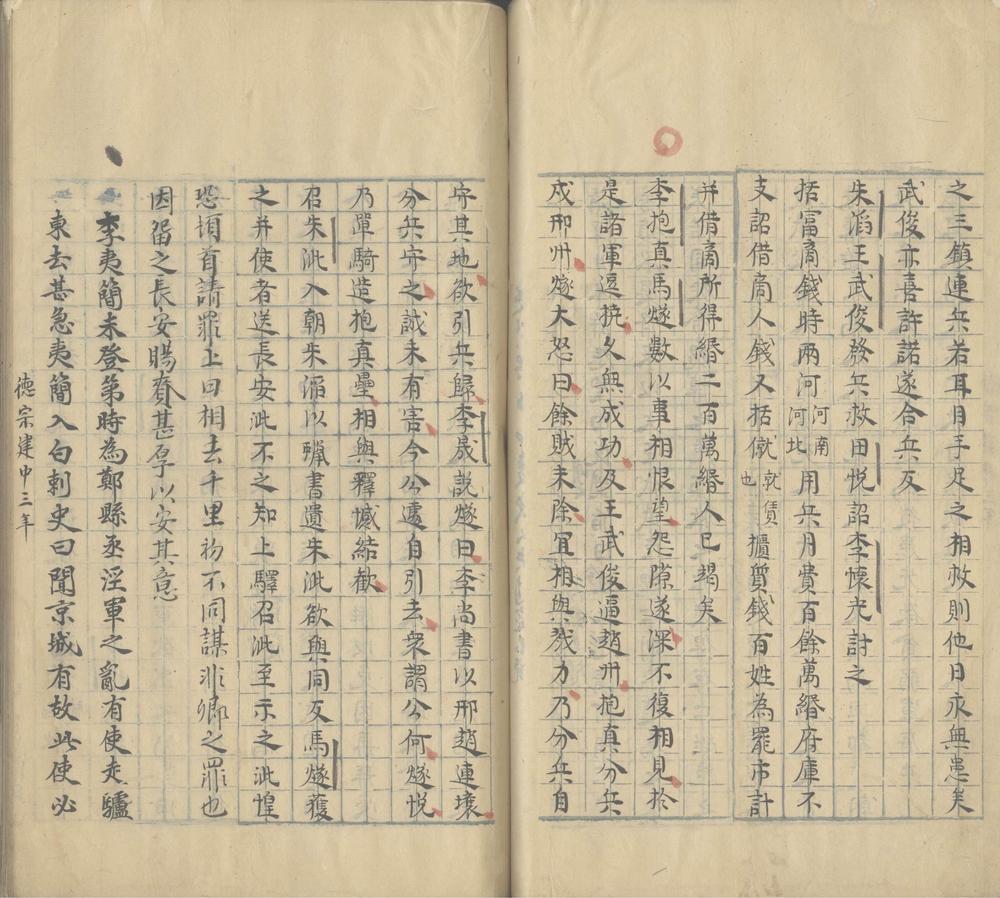 之三鎮連兵若耳目手足之相救則他日永無患矣
武俊亦喜許諾遂合兵反
朱滔王武俊發兵救田悅詔李懷光討之
括富商錢時兩河河南河北用兵月費百餘萬緡府庫不
支詔借商人錢又括僦就賃也櫃質錢百姓為罷市計
并借商所得緡二百萬緡人已竭矣
李抱真馬燧數以事相恨望怨隙遂深不復相見於
是諸軍逗撓久無成功及王武俊逼趙州抱真分兵
戍邢州燧大怒曰餘賊未除宜相與戮力乃分兵自
守其地欲引兵歸李晟說燧曰李尚書以邢趙連壤
分兵守之誠未有害今公遽自引去衆謂公何燧悅
乃單騎造抱真壘相與釋憾結歡
召朱泚入朝朱滔以蠟書遺朱泚欲與同反馬燧獲
之并使者送長安泚不之知上驛召泚至示之泚惶
恐頓首請罪上曰相去千里初不同謀非卿之罪也
因留之長安賜賚甚厚以安其意
李夷簡未登第時為鄭縣丞涇軍之亂有使走驢
東去甚急夷簡入白刺史曰聞京城有故此使必
德宗建中三年